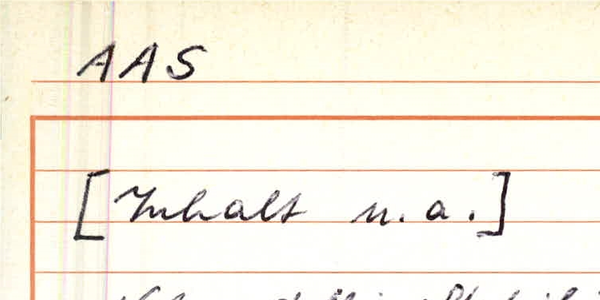 AAS
[Inhalt u.a.]